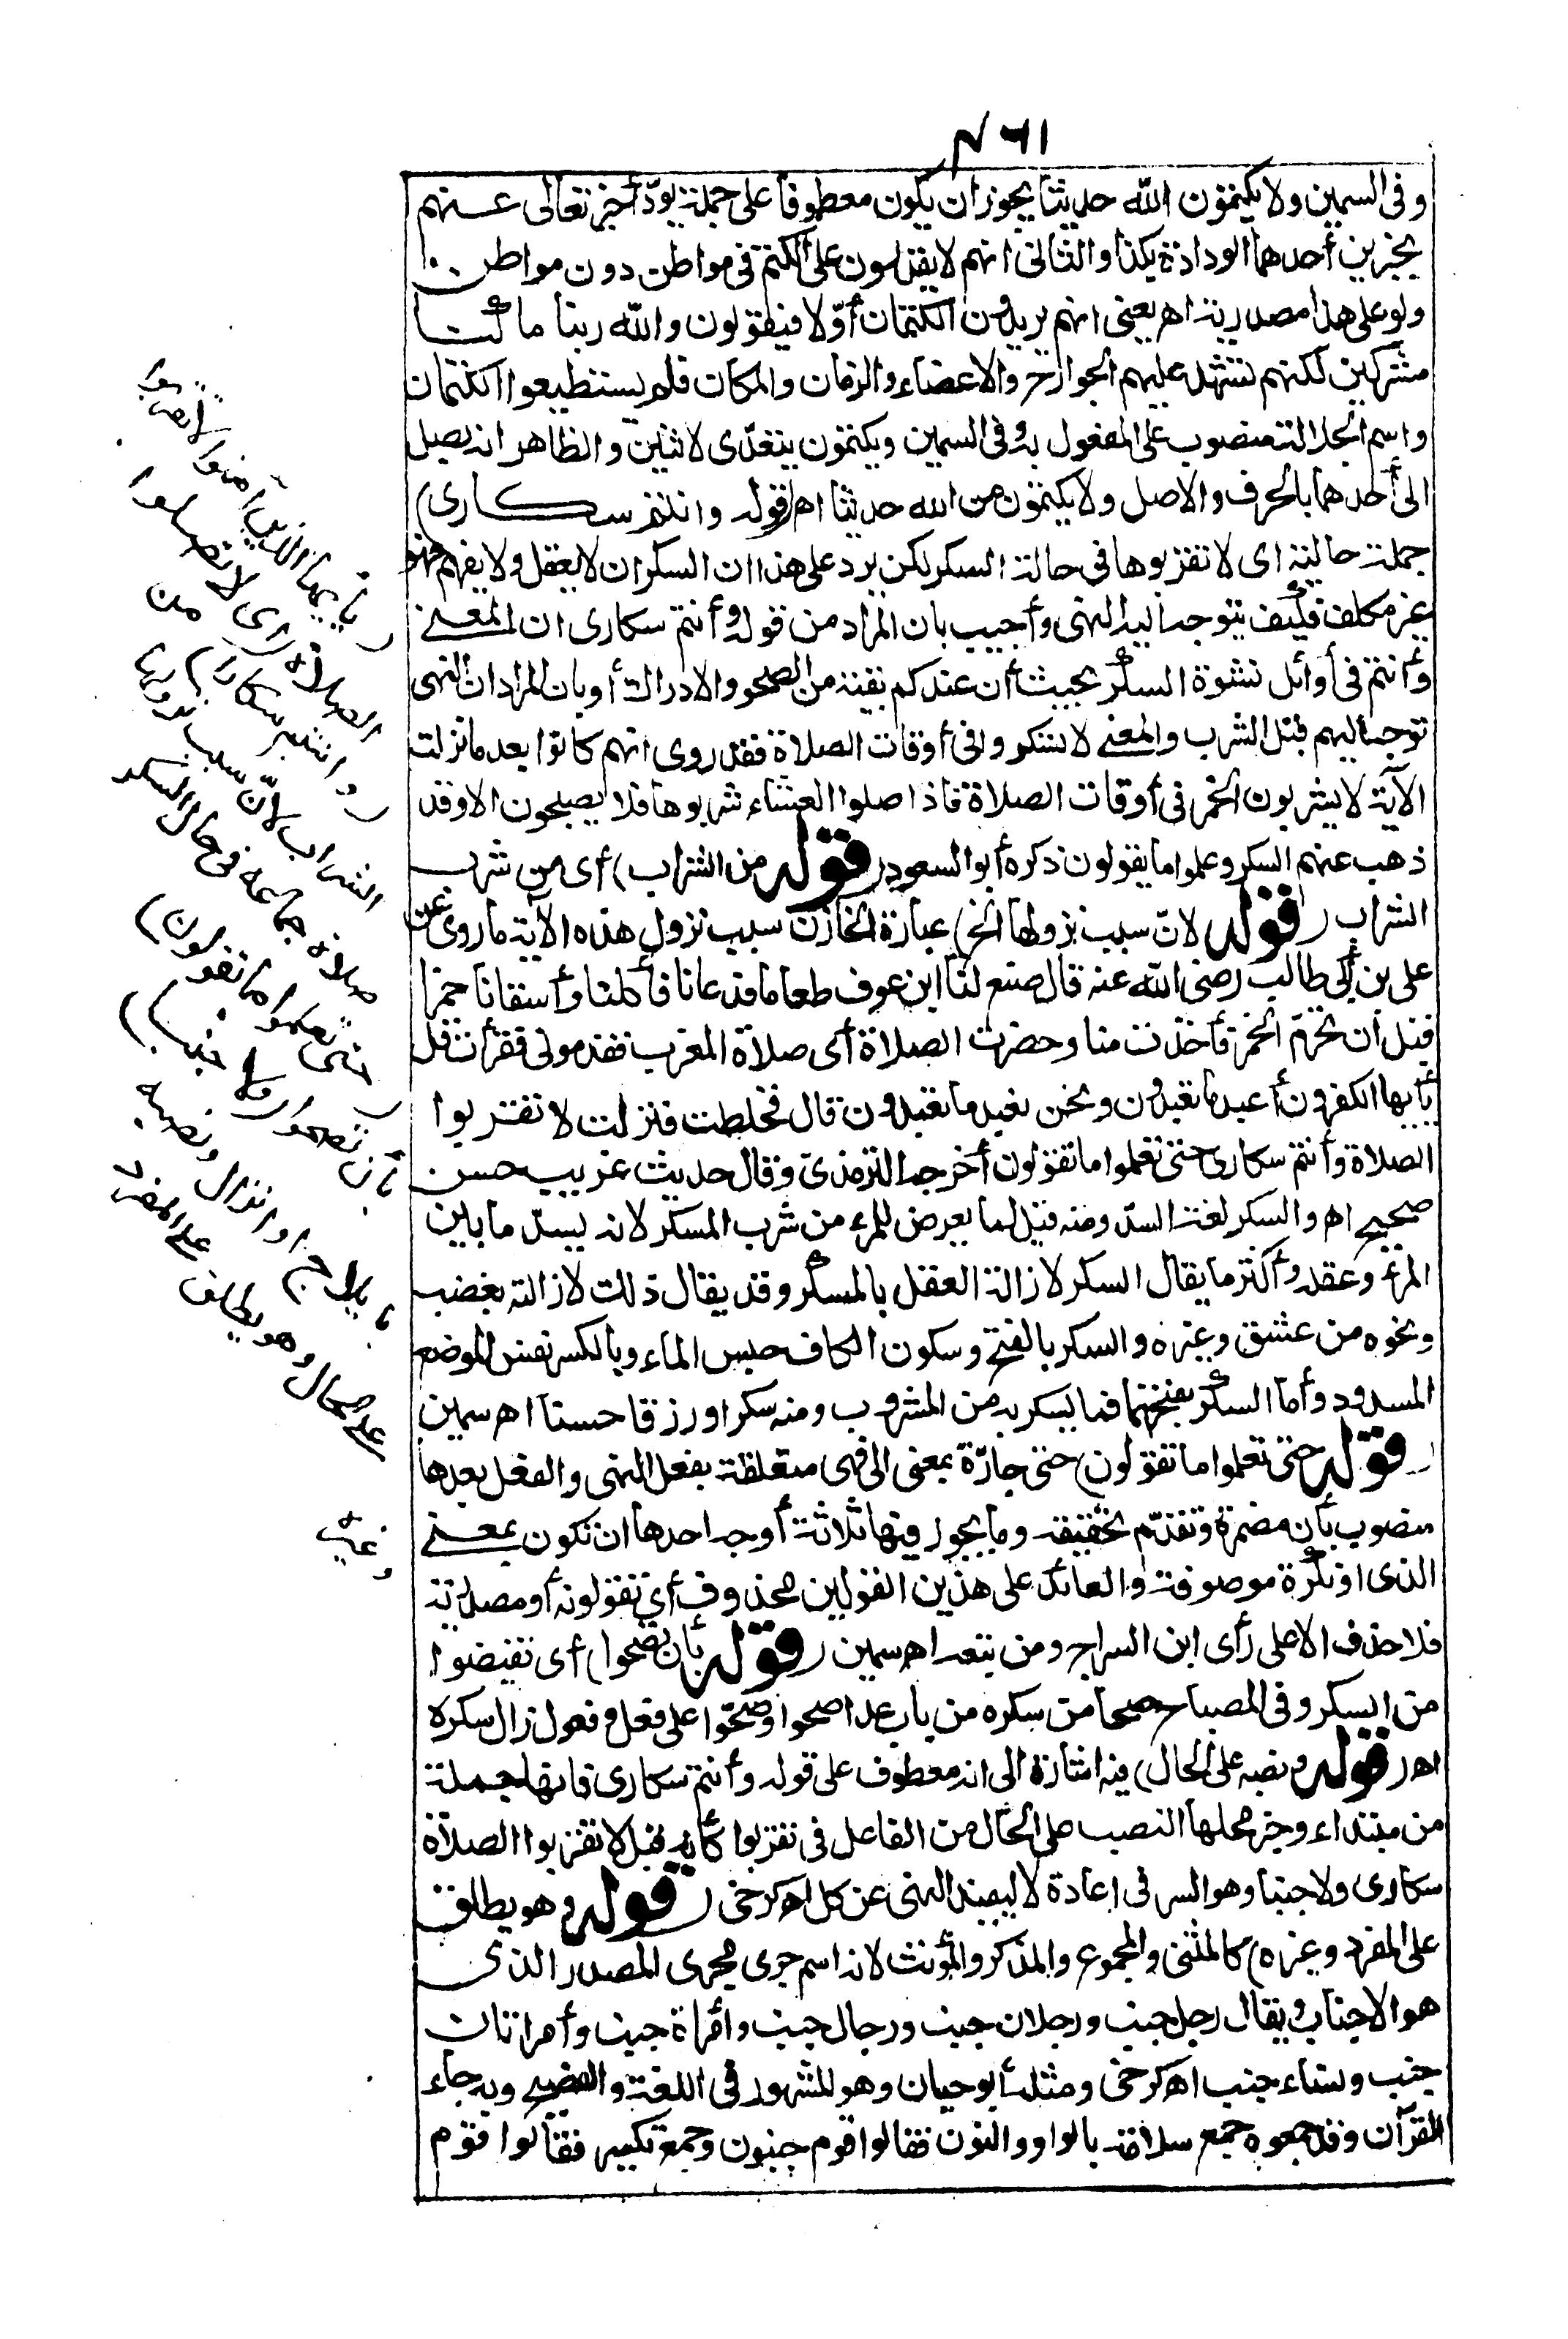 ٤٦١
وفى السمين ولا يكتمون الله حديثا يجوز ان يكون معطوفا على جملة يودّ أخبر تعالى عنهم
بخبرين أحدهما الودادة بكذا والثانى انهم لا يقدرون على الكتم فى مواطن دون مواطن
ولو على هذا مصدرية اهر يعنى انهم يريدون الكتمان أوّلا فيقولون والله ربنا ما كنا
مشركين لكنهم تشهد عليهم الجوارح والاعضاء والزمان والمكان فلم يستطيعوا الكتمان
واسم الجلالة منصوب على المفعول به وفى السمين ويكتمون يتعدّى لاثنين والظاهر انه يصل
الى أحدهما بالحرف والاصل ولا يكتمون من الله حديثا اهر (قوله وانتم سكارى)
جملة حالية اى لا تقربوها فى حالة السكر لكن يرد على هذا ان السكران لا يعقل ولا يفهم فهو
غير مكلف فكيف يتوجه اليه النهى وأجيب بان المراد من قوله وأنتم سكارى ان المعنى
وأنتم فى أوائل نشوة السكر بحيث أن عندكم بقية من الصحو والادراك أو بان المراد ان النهى
توجه اليهم قبل الشرب والمعنى لا تسكروا فى أوقات الصلاة فقد روى انهم كانوا بعد ما نزلت
الآية لا يشربون الخمر فى أوقات الصلاة فاذا صلوا العشاء شربوها فلا يصبحون الا وقد
ذهب عنهم السكر وعلموا ما يقولون ذكره أبو السعود (قوله من الشراب) أى من شرب
الشراب (قوله لانّ سبب نزولها الخ) عبارة الخازن سبب نزول هذه الآية ما روى عن
على بن أبى طالب رضى الله عنه قال صنع لنا ابن عوف طعاما فدعانا فأكلنا وأسقانا خمرا
قبل أن تحرّم الخمر فأخذت منا وحضرت الصلاة أى صلاة المغرب فقدمونى فقرأت قل
يأيها الكفرون أعبد ما تعبدون ونحن نعبد ما تعبدون قال فخلطت فنزلت لا تقربوا
الصلاة وأنتم سكارى حتى تعلموا ما تقولون أخرجه الترمذى وقال حديث غريب حسن
صحيح اهر والسكر لغة السدّ ومنه قيل لما يعرض للمرء من شرب المسكر لانه يسدّ ما بين
المرء وعقله وأكثر ما يقال السكر لازالة العقل بالمسكر وقد يقال ذلك لازالته بغضب
ونحوه من عشق وغيره والسكر بالفتح وسكون الكاف حبس الماء وبالكسر نفس الموضع
المسدود وأما السكر بفتحتهما فما يسكر به من المشروب ومنه سكرا ورزقا حسنا اهر سمين
(قوله حتى تعلموا ما تقولون) حتى جارّة بمعنى الى فهى متعلقة بفعل النهى والفعل بعدها
منصوب بأن مضمرة وتقدّم تحقيقه وما يجوز فيها ثلاثة أوجه احدها ان تكون بمعنى
الذى او نكرة موصوفة والعائد على هذين القولين محذوف أى تقولونه أو مصدرية
فلا حذف الا على رأى ابن السراج ومن تبعه اهر سمين (قوله بأن تصحوا) أى تفيضوا
من السكر وفى المصباح صحا من سكره من باب عدا صحوا وصحوّا على فعل وفعول زال سكره
اهر (قوله ونصبه على الحال) فيه اشارة الى انه معطوف على قوله وأنتم سكارى فانها جملة
من مبتداء وخبر محلها النصب على الحال من الفاعل فى تقربوا كأنه قيل لا تقربوا الصلاة
سكارى ولا جنبا وهو السر فى إعادة لا ليفيد النهى عن كل اهر كرخى (قوله وهو يطلق
على المفرد وغيره) كالمثنى والمجموع والمذكر والمؤنث لانه اسم جرى مجرى المصدر الذى
هو الاجناب ويقال رجل جنب ورجلان جنب ورجال جنب وامرأة جنب وأمرأتان
جنب ونساء جنب اهر كرخى ومثله أبو حيان وهو المشهور فى اللغة والفصيح وبه جاء
القرآن وقد جمعوه جمع سلامة بالواو والنون فقالوا قوم جنبون وجمع تكسير فقالوا قوم
(يأيها الذين آمنوا لا تقربوا
الصلاة) اى لا تصلوا
(وانتم سكارى) من
الشراب لانّ سبب نزولها
صلاة جماعة فى حال السكر
(حتى تعلموا ما تقولون)
بأن تصحوا (ولا جنبا)
بايلاج او انزال ونصبه
على الحال وهو يطلق على المفرد
وغيره